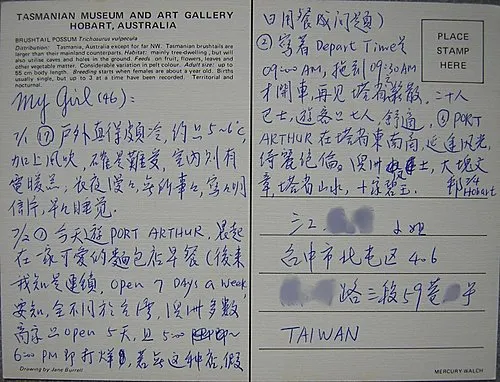 TASMANIAN MUSEUM AND ART GALLERY
HOBART, AUSTRALIA
BRUSHTAIL POSSUM Trichosurus vulpecula
Distribution: Tasmania, Australia except for far NW. Tasmanian brushtails are
larger than their mainland counterparts. Habitat: mainly tree-dwelling, but will
also utilise caves and holes in the ground. Feeds on fruit, flowers, leaves and
other vegetable matter. Considerable variation in pelt colour. Adult size: up to
55 cm body length. Breeding starts when females are about a year old. Births
usually single, but up to 3 at a time have been recorded. Territorial and
nocturnal.
My Girl (46):
7/1 ⑰ 戶外真得頗冷, 約只5~6℃,
加上風吹, 確是難受, 室內則有
電暖器, 長夜漫々, 無所事々, 寫々明
信片, 早々睡覺.
7/2 ① 今天遊PORT ARTHUR, 晨起
在一家可愛的麵包店早餐 (後來
我知是連鎖, open 7 DAYS a week,
要知, 全不同於台灣, 澳洲多數
商家只open 5天, 且 5:00
6:00 PM 即打烊, 若無這種店, 假
Drawing by Jane Burrell
日用餐成問題)
② 寫着Depart Time是
09:00 AM, 拖到 09:30 AM
才開車, 再見塔省鬆散, 二十人
巴士, 遊客只七人, 舒適, ③ PORT
ARTHUR在塔省東南角, 延途風光,
綺麗絕倫, 澳洲 士, 大塊文
章, 塔省山水, 十
7/4
Hobart
PLACE
STAMP
HERE
小姐
台中市北屯区 406
路三段59巷 号
TAIWAN
MERCURY-WALCH